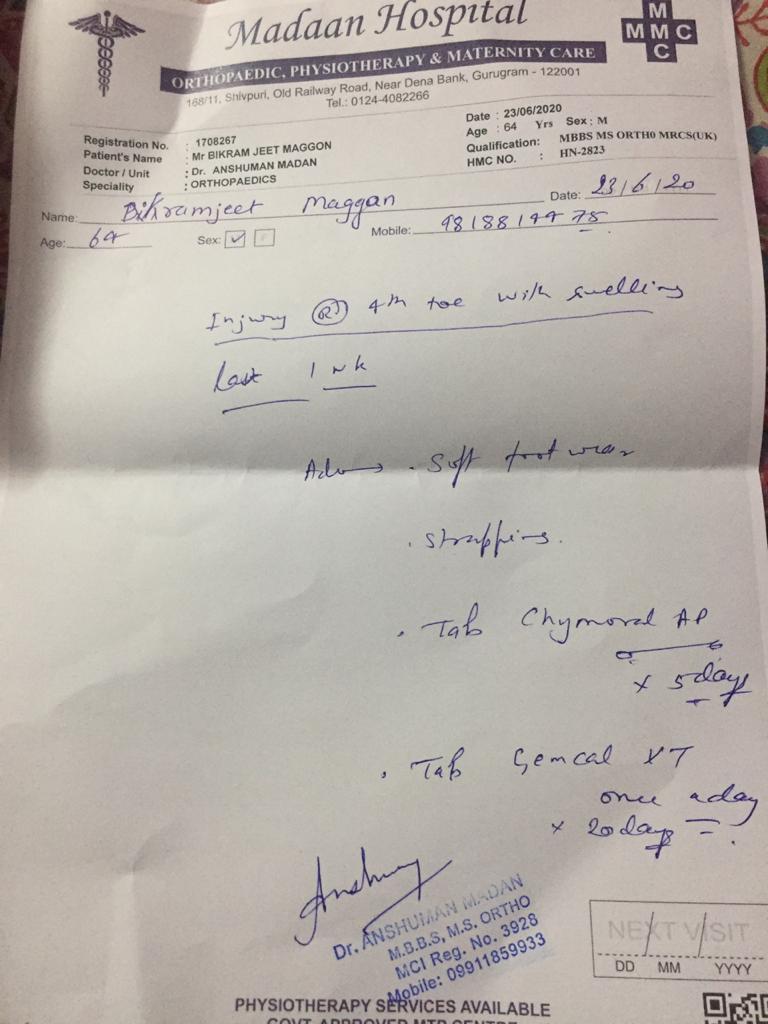 Madaan Hospital
M
M M C
C
ORTHOPAEDIC, PHYSIOTHERAPY & MATERNITY CARE
168/11, Shivpuri, Old Railway Road, Near Dena Bank, Gurugram - 122001
Tel.: 0124-4082266
Registration No. : 1708267
Patient's Name : Mr BIKRAM JEET MAGGON
Doctor / Unit : Dr. ANSHUMAN MADAN
Speciality : ORTHOPAEDICS
Date : 23/06/2020
Age : 64 Yrs Sex : M
Qualification: MBBS MS ORTH0 MRCS(UK)
HMC NO. : HN-2823
Name: Bikramjeet Maggan Date: 23/6/20
Age: 64 Sex: Mobile:
Injury Rt 4th toe with swelling
Last 1 wk
Adv → . Soft foot wear
. Strapping.
. Tab Chymoral AP
x 5 days
. Tab Gemcal XT
once a day
x 20 days
Dr. ANSHUMAN MADAN
M.B.B.S, M.S. ORTHO
MCI Reg. No. 3928
Mobile: 09911859933
NEXT VISIT
DD MM YYYY
PHYSIOTHERAPY SERVICES AVAILABLE